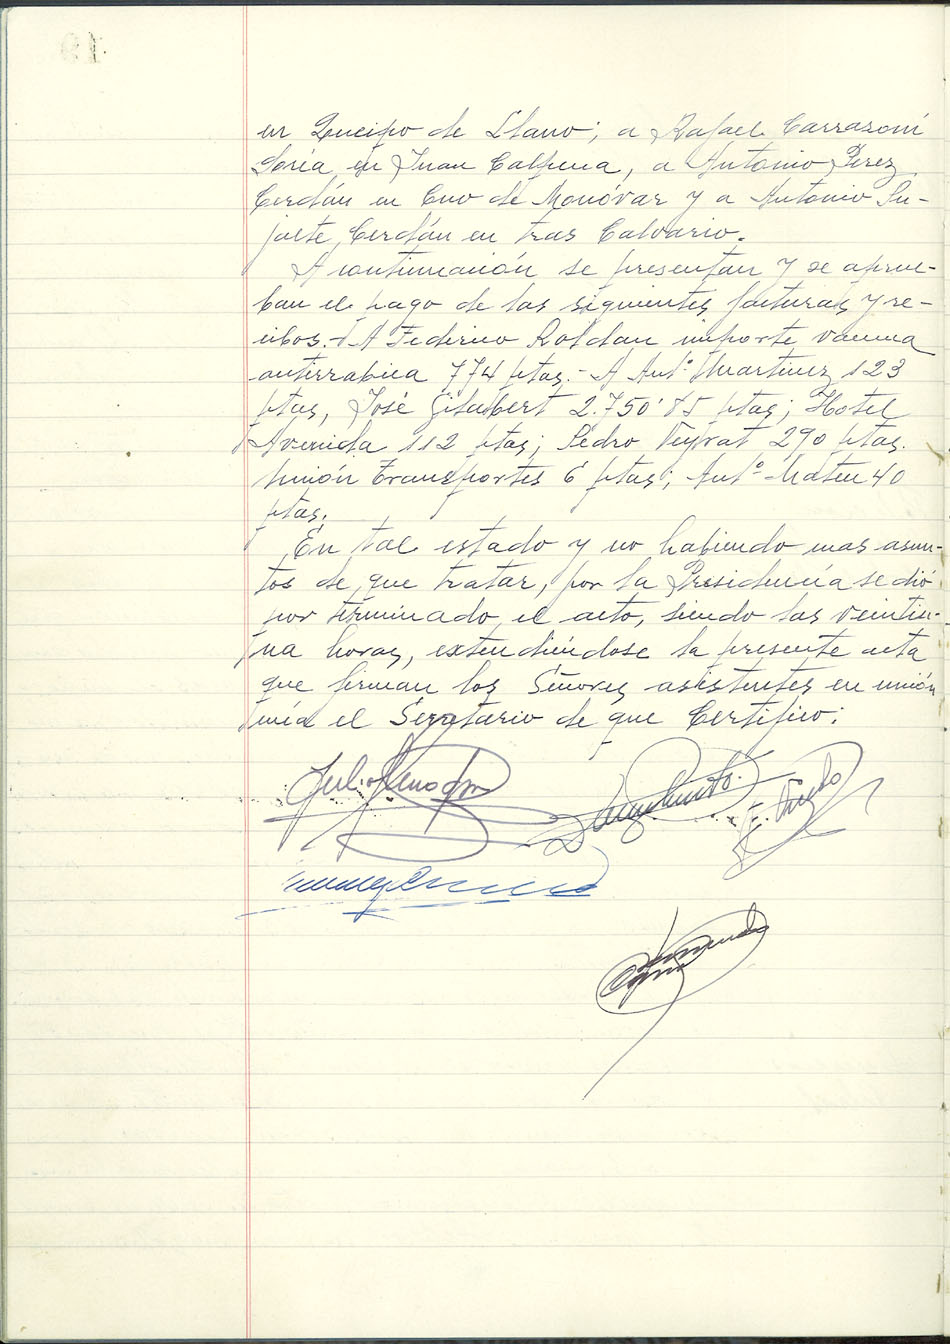 en Queipo de Llano; a Rafael Carrasoni
Soria en Juan Calpena, a Antonio Perez
Cerdán en Cno de Monóvar y a Antonio
Cerdán en tras Calvario.
A continuación se presentan y se aprue-
ban el pago de las siguientes facturas y re-
cibos.- A Federico Roldan importe vacuna
antirrabica 774 ptas.- A Antº Martinez 123
ptas, José Gilabert 2.750'85 ptas; Hotel
Avenida 112 ptas; Pedro Veyrat 290 ptas.
Unión Transportes 6 ptas; Antº Mateu 40
ptas.
En tal estado y no habiendo mas asun-
tos de que tratar, por la Presidencia se dió
por terminado el acto, siendo las veintiu-
na horas, extendiéndose la presente acta
que firman los Señores asistentes en unión
mía el Secretario de que Certifico: